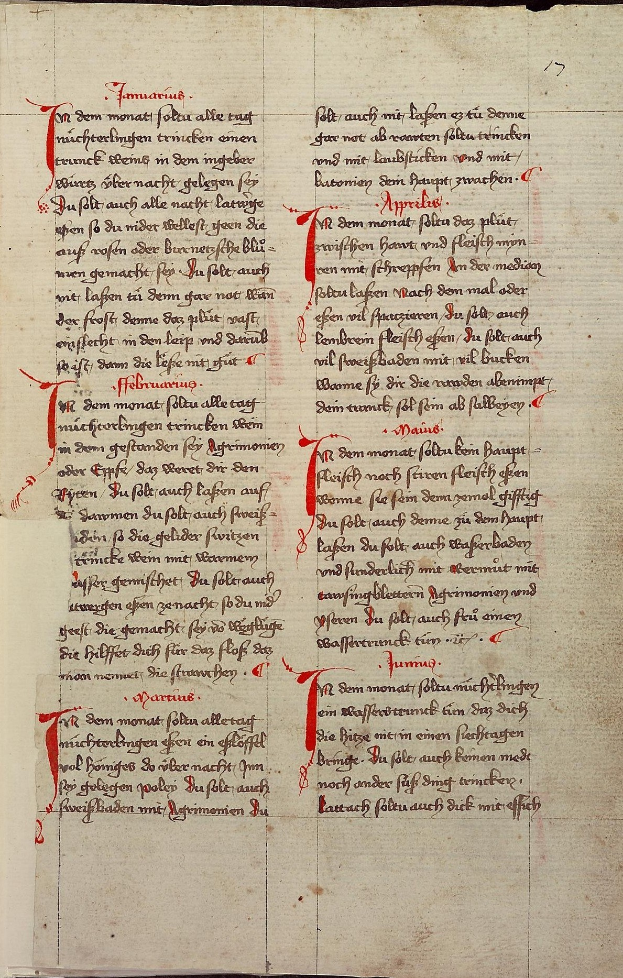 17
Januarius.
In dem monat soltu alle tag
nüchterlingen trincken einen
trunck weins in dem ingeber
würtz über nacht gelegen sey
Du solt auch alle nacht latwerge
essen so du nider wellest geen die
auß rosen oder burretzsche blů-
men gemacht sey Du solt auch
nit laßen tů denn gar not wan
der frost denne daz plůt vast
in den leip vnd darub
so ist dann die leße nit gůt
Februarius.
In dem monat soltu alle tag
nüchterlingen trincken wein
in dem gestanden sey Agrimonien
oder Eppfe daz weret dir den
Du solt auch laßen auf
dawmen du solt auch sweiß-
so die gelider switzen
trincke wein mit warmem
gemischet Du solt auch
essen zenacht so du nid'
geest die gemacht sey vo wegluge
die hilffet dich für daz floß daz
man nennet die strauchen.
Martius.
In dem monat soltu alle tag
nüchterlingen essen ein eßlöffel
vol höniges do über nacht Inn
sey gelegen poley Du solt auch
sweißbaden mit Agrimonien Du
solt auch nit laßen ez tů denne
gar not ab rawten soltu trincken
vnd mit laubsticken vnd mit
batonien dein haupt zwachen.
Apprilis.
In dem monat soltu daz plůt
zwischen hawt vnd fleisch myn
ren mit schrepffen An der median
soltu laßen Nach dem mal oder
essen vil spacziren Du solt auch
lembrein fleisch essen Du solt auch
vil sweißbaden mit vil bucken
wanne sy dir die rawden abenimpt
dein trunck sol sein ab salbeyen.
Maius.
In dem monat soltu kein haupt-
fleisch noch stiren fleisch essen
wenne sie sein denn zemol gifftig
Du solt auch denne zů dem haupt
laßen du solt auch waßerbaden
vnd sunderlich mit wermůt mit
Agrimonien vnd
yseren Du solt auch frů einen
wassertrunck tün
Junius.
In dem monat soltu nüchterlingen
ein wasserstrunck tün daz dich
die hitze nit in einen siechtagen
bringe. Du solt auch keinen medt
noch ander süß ding trincken.
lattach soltu auch dick mit essich